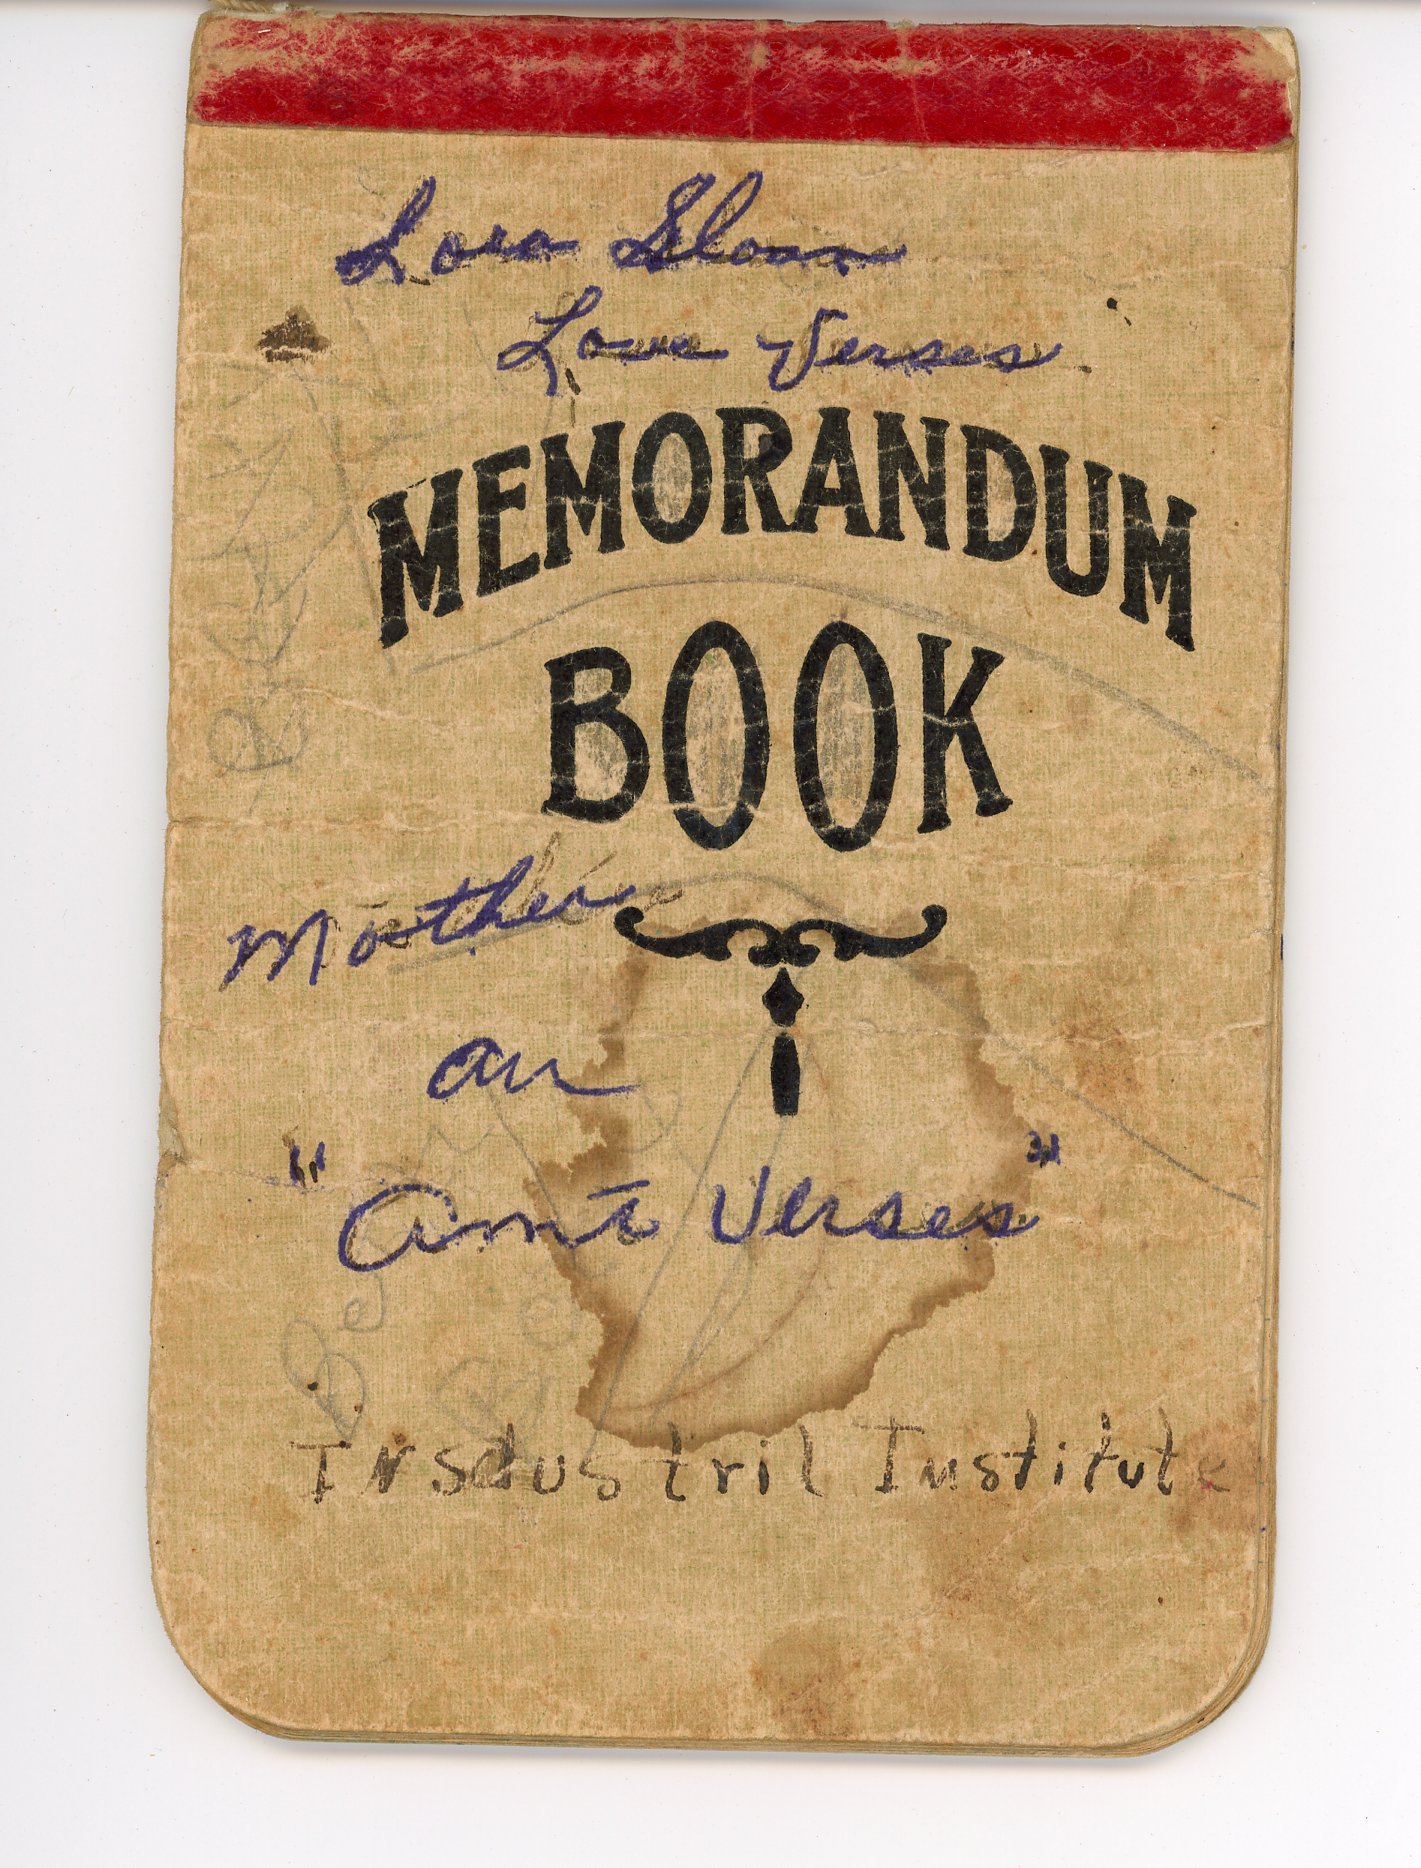 Lora Sloan
Love Verses
MEMORANDUM
BOOK
Mother
an
"Ami Verses"
Insdustril Institute